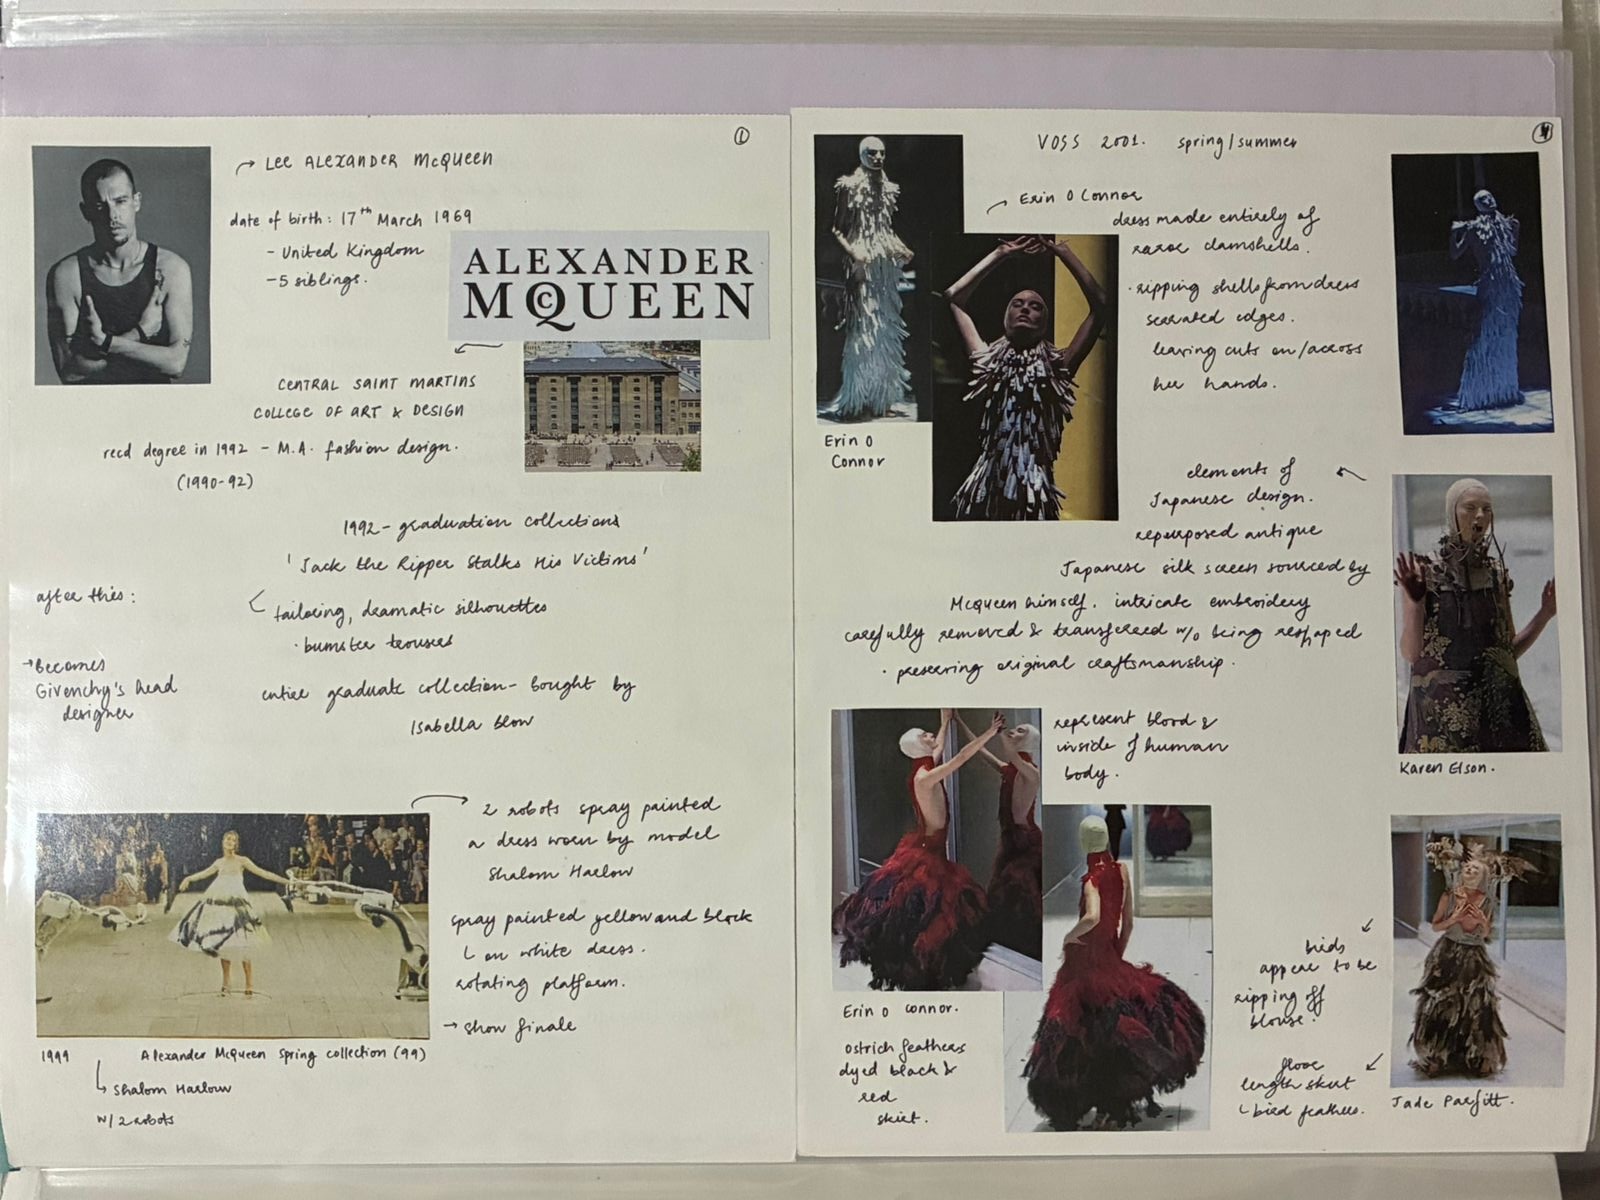 1
→ Lee ALEXANDER McQUEEN
date of birth: 17th March 1969
- United Kingdom
- 5 siblings.
ALEXANDER
McQUEEN
CENTRAL SAINT MARTINS
COLLEGE OF ART & DESIGN
recd degree in 1992 - M.A. fashion design.
(1990-92)
1992 - graduation collections
'Jack the Ripper Stalks His Victims'
after this:
tailoring, dramatic silhouettes
· bumster trousers
→ Becomes
Givenchy's head
designer
entire graduate collection - bought by
Isabella blow
2 robots spray painted
a dress worn by model
Shalom Harlow
spray painted yellow and black
on white dress.
rotating platform.
→ show finale
1999 Alexander McQueen Spring collection (99)
Shalom Harlow
w/ 2 robots
VOSS 2001. spring/summer
Erin O Connor
dress made entirely of
razor clamshells.
· ripping shells from dress
serrated edges.
leaving cuts on/across
her hands.
Erin O
Connor
elements of
Japanese design.
repurposed antique
Japanese silk screen sourced by
McQueen himself. intricate embroidery
carefully removed & transferred w/o being reshaped
· preserving original craftsmanship.
Karen Elson.
represent blood &
inside of human
body.
Erin O Connor.
ostrich feathers
dyed black &
red
skirt.
birds
appear to be
ripping off
blouse.
floor
length skirt
bird feathers.
Jade Parfitt.